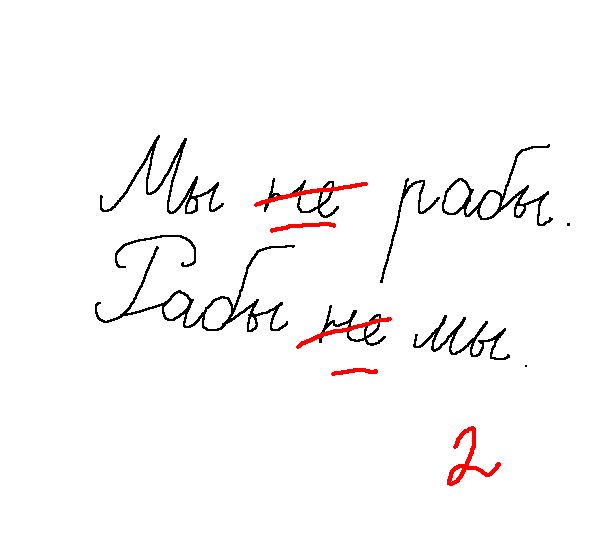 Мы не рабы.
Рабы не мы.
2